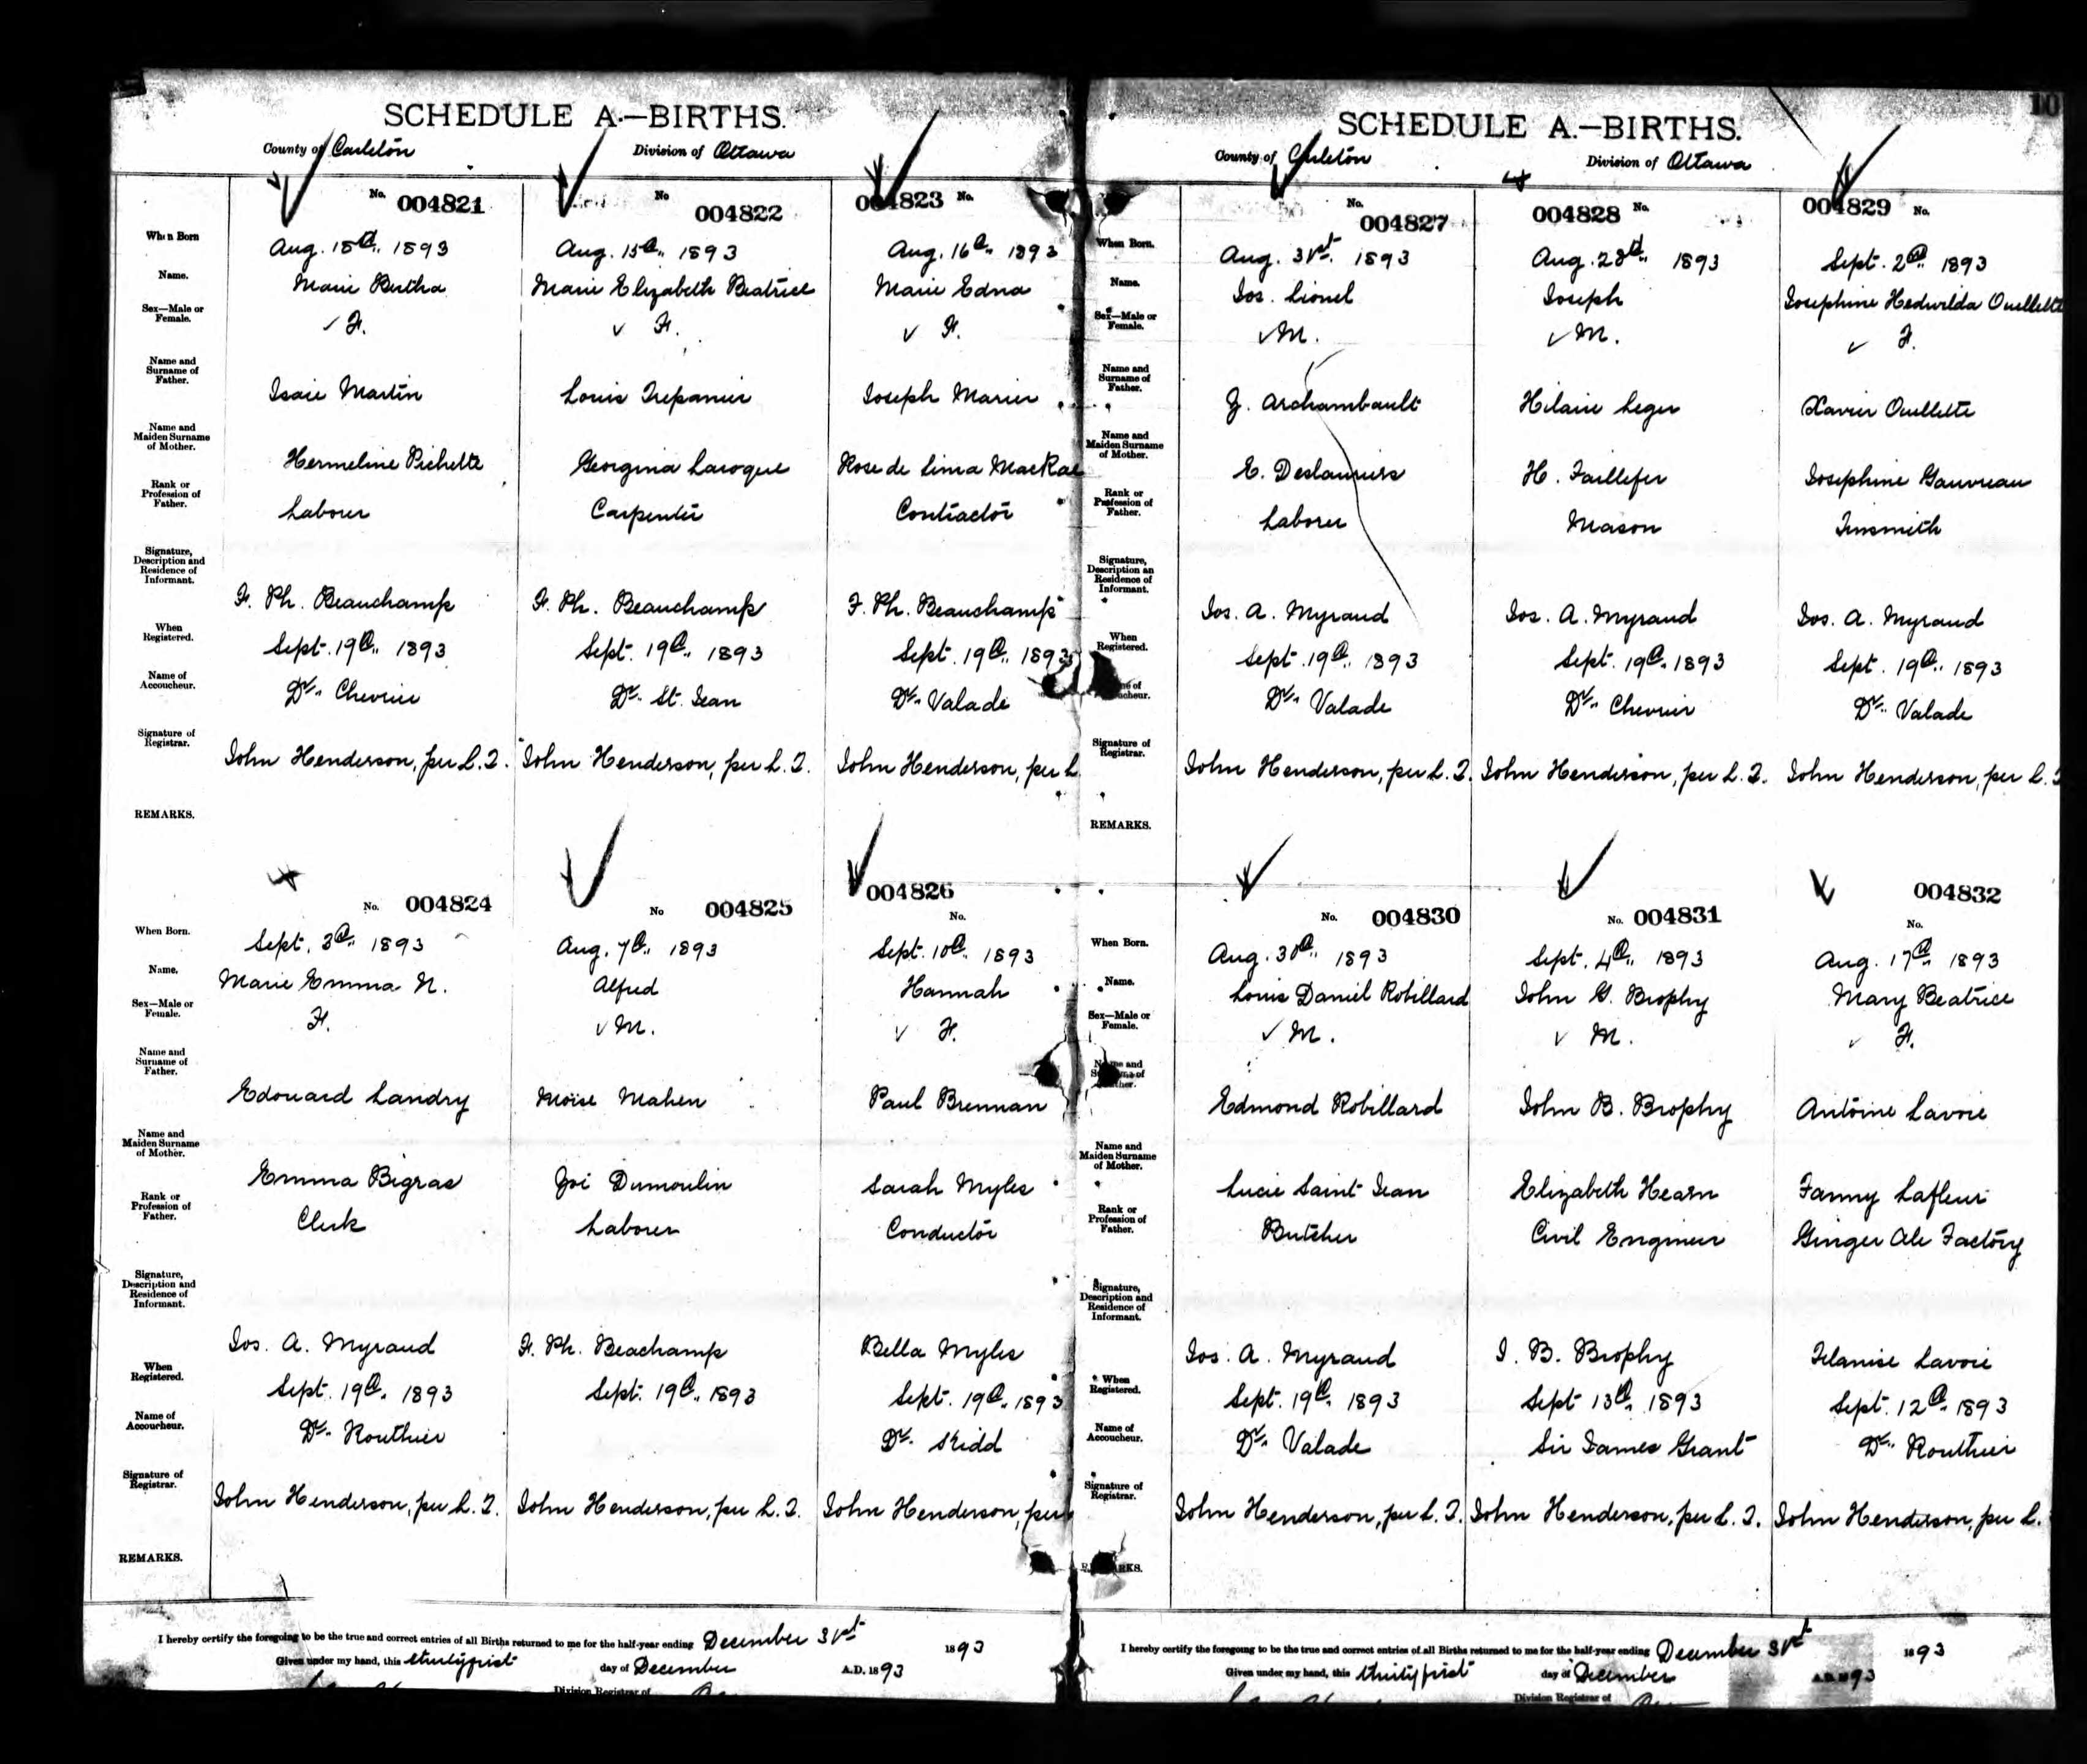 SCHEDULE A.—BIRTHS.
County of Carleton Division of Ottawa
No. 004821 No 004822 004823 No.
When Born Aug. 18th, 1893 Aug. 15th, 1893 Aug. 16th, 1893
Name. Marie Bertha Marie Elizabeth Beatrice Marie Edna
Sex—Male or Female. F. F. F.
Name and Surname of Father. Isaie Martin Louis Trepanier Joseph Marier
Name and Maiden Surname of Mother. Hermeline Pichette Georgina Laroque Rose de Lima MacKae
Rank or Profession of Father. Laborer Carpenter Contractor
Signature, Description and Residence of Informant. F. Ph. Beauchamp F. Ph. Beauchamp F. Ph. Beauchamp
When Registered. Sept. 19th, 1893 Sept. 19th, 1893 Sept. 19th, 1893
Name of Accoucheur. Dr. Chevrier Dr. St. Jean Dr. Valade
Signature of Registrar. John Henderson, per L. J. John Henderson, per L. J. John Henderson, per L
REMARKS.
No. 004824 No 004825 004826 No.
When Born. Sept. 3rd, 1893 Aug. 7th, 1893 Sept. 10th, 1893
Name. Marie Emma N. Alfred Hannah
Sex—Male or Female. F. M. F.
Name and Surname of Father. Edouard Landry Moise Mahen Paul Brennan
Name and Maiden Surname of Mother. Emma Bigras Zoé Dumoulin Sarah Myles
Rank or Profession of Father. Clerk Laborer Conductor
Signature, Description and Residence of Informant. Jos. A. Myraud F. Ph. Beachamp Bella Myles
When Registered. Sept. 19th, 1893 Sept. 19th, 1893 Sept. 19th, 1893
Name of Accoucheur. Dr. Routhier Dr. Kidd
Signature of Registrar. John Henderson, per L. J. John Henderson, per L. J. John Henderson, per
REMARKS.
I hereby certify the foregoing to be the true and correct entries of all Births returned to me for the half-year ending December 31st 1893
Given under my hand, this thirtyfirst day of December A.D. 1893
Division Registrar of
10
SCHEDULE A.—BIRTHS.
County of Carleton Division of Ottawa
No. 004827 004828 No. 004829 No.
When Born. Aug. 31st. 1893 Aug. 28th, 1893 Sept. 2nd, 1893
Name. Jos. Lionel Joseph Josephine Hedwilda Ouellette
Sex—Male or Female. M. M. F.
Name and Surname of Father. Z. Archambault Hilaire Leger Xavier Ouellette
Name and Maiden Surname of Mother. E. Deslauriers H. Faillefer Josephine Gauvreau
Rank or Profession of Father. Laborer Mason Tinsmith
Signature, Description an Residence of Informant. Jos. A. Myraud Jos. A. Myraud Jos. A. Myraud
When Registered. Sept. 19th, 1893 Sept. 19th, 1893 Sept. 19th, 1893
Dr. Valade Dr. Chevrier Dr. Valade
Signature of Registrar. John Henderson, per L. J. John Henderson, per L. J. John Henderson, per L. J
REMARKS.
No. 004830 No. 004831 004832 No.
When Born. Aug. 30th, 1893 Sept. 4th, 1893 Aug. 17th, 1893
Name. Louis Daniel Robillard John G. Brophy Mary Beatrice
Sex—Male or Female. M. M. F.
Edmond Robillard John B. Brophy Antoine Lavoie
Name and Maiden Surname of Mother. Lucie Saint Jean Elizabeth Hearn Fanny Lafleur
Rank or Profession of Father. Butcher Civil Engineer Ginger Ale Factory
Signature, Description and Residence of Informant. Jos. A. Myraud J. B. Brophy Telanise Lavoie
When Registered. Sept. 19th, 1893 Sept 13th, 1893 Sept. 12th, 1893
Name of Accoucheur. Dr. Valade Sir James Grant Dr. Routhier
Signature of Registrar. John Henderson, per L. J. John Henderson, per L. J. John Henderson, per L.
I hereby certify the foregoing to be the true and correct entries of all Births returned to me for the half-year ending December 31st 1893
Given under my hand, this thirtyfirst day of December A.D. 1893
Division Registrar of